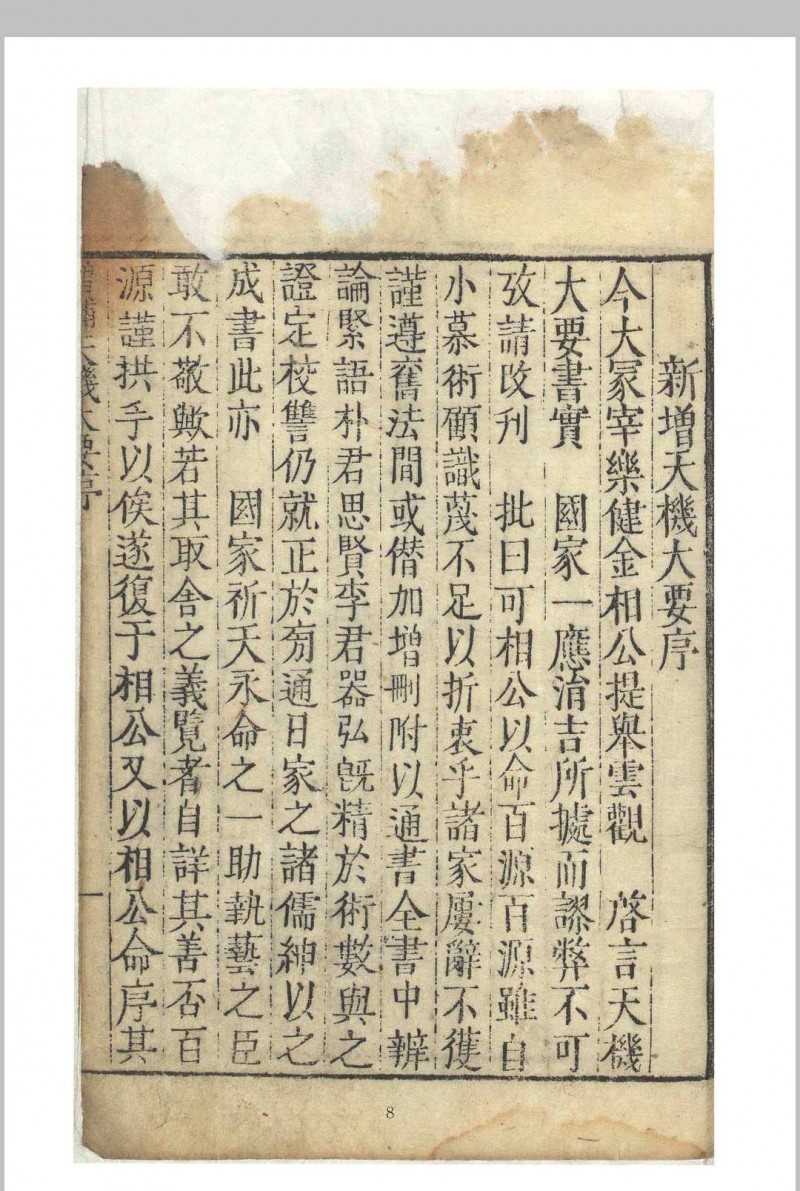 新增天機大要序
今大冢宰樂健金相公提舉雲觀　啓言天機
大要書實　國家一應涓吉所㨿而謬弊不可
攷請改刊　批曰可相公以命百源百源雖自
小慕術顧識蔑不足以折衷乎諸家屢辭不獲
謹遵舊法間或僭加增刪附以通書全書中辦
論緊語朴君思賢李君器弘旣精於術數與之
證定校讐仍就正於旁通日家之諸儒紳以之
成書此亦　國家祈天永命之一助執藝之臣
敢不敬歟若其取舍之義覽者自詳其善否百
源謹拱手以俟遂復于相公又以相公命序其
增補天機大要序
一
8